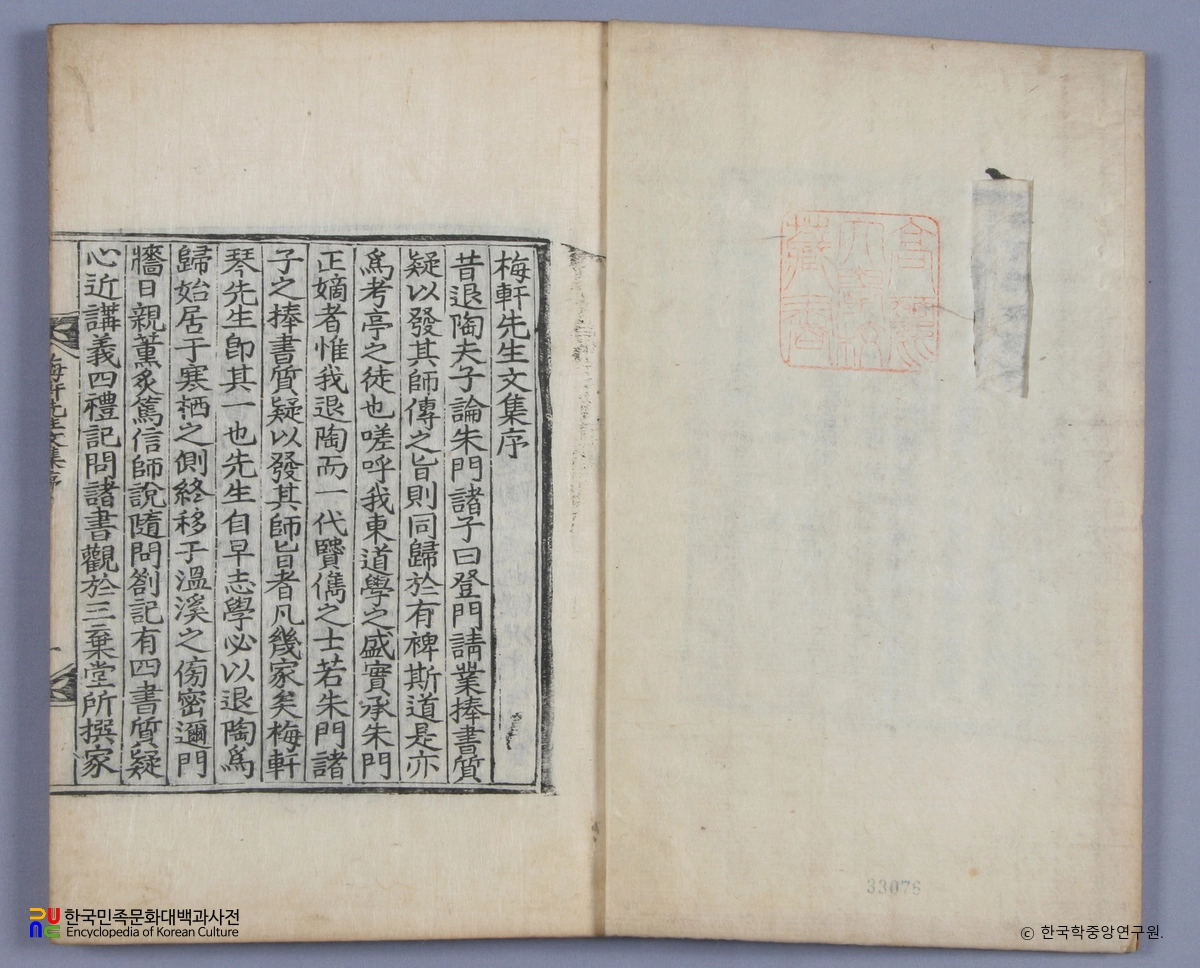 梅軒先生文集序
昔退陶夫子論朱門諸子曰登門請業捧書質
疑以發其師傳之旨則同歸於有裨斯道是亦
爲考亭之徒也嗟呼我東道學之盛實承朱門
正嫡者惟我退陶而一代賢儁之士若朱門諸
子之捧書質疑以發其師旨者凡幾家矣梅軒
琴先生卽其一也先生自早志學必以退陶爲
歸始居于寒栖之側終移于溫溪之傍密邇門
牆日親薰炙篤信師說隨問劄記有四書質疑
心近講義四禮記問諸書觀於三棄堂所撰家
梅軒先生文集序
33076
한국민족문화대백과사전
Encyclopedia of Korean Culture
© 한국학중앙연구원.